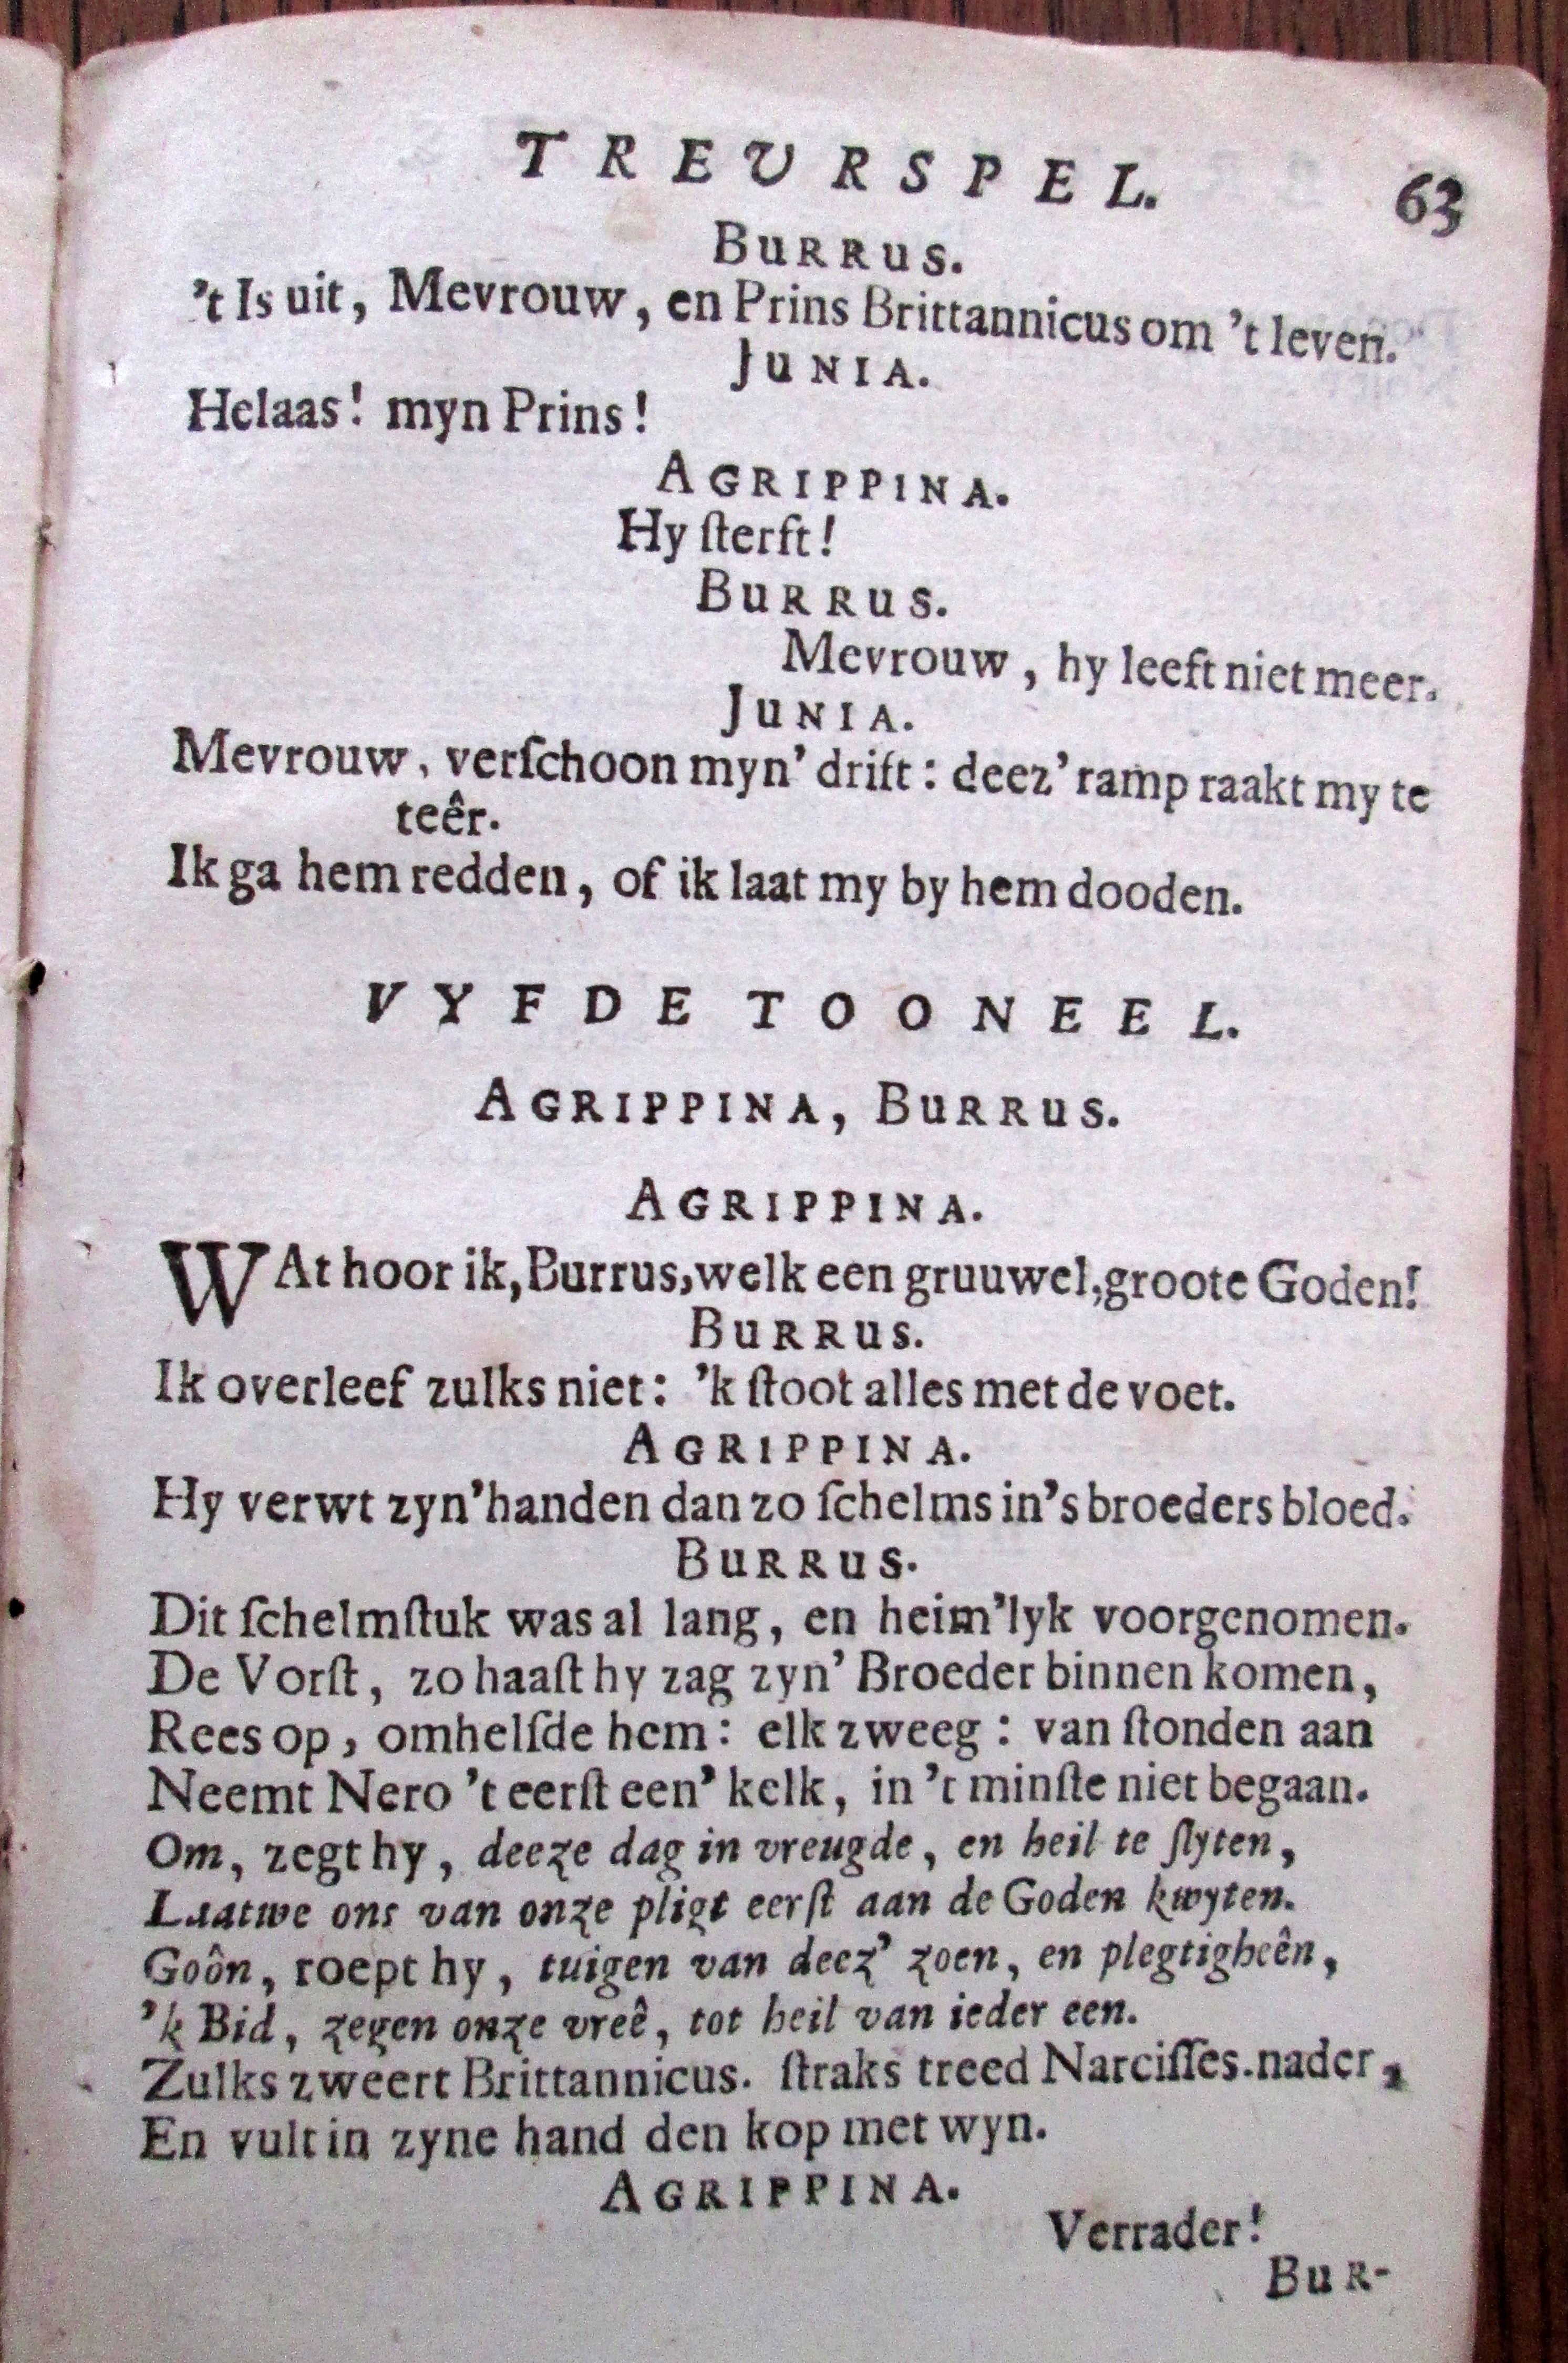 TREURSPEL. 63
BURRUS.
't Is uit, Mevrouw, en Prins Brittannicus om 't leven.
JUNIA.
Helaas! myn Prins!
AGRIPPINA.
Hy ſterft!
BURRUS.
Mevrouw, hy leeft niet meer.
JUNIA.
Mevrouw, verſchoon myn' drift: deez' ramp raakt my te
teêr.
Ik ga hem redden, of ik laat my by hem dooden.
VYFDE TOONEEL.
AGRIPPINA, BURRUS.
AGRIPPINA.
WAt hoor ik, Burrus, welk een gruuwel, groote Goden!
BURRUS.
Ik overleef zulks niet: 'k ſtoot alles met de voet.
AGRIPPINA.
Hy verwt zyn' handen dan zo ſchelms in 's broeders bloed.
BURRUS.
Dit ſchelmſtuk was al lang, en heim'lyk voorgenomen.
De Vorſt, zo haaſt hy zag zyn' Broeder binnen komen,
Rees op, omhelſde hem: elk zweeg: van ſtonden aan
Neemt Nero 't eerſt een' kelk, in 't minſte niet begaan.
Om, zegt hy, deeze dag in vreugde, en heil te ſlyten,
Laatwe ons van onze pligt eerſt aan de Goden kwyten.
Goôn, roept hy, tuigen van deez' zoen, en plegtigheên,
'k Bid, zegen onze vreê, tot heil van ieder een.
Zulks zweert Brittannicus. ſtraks treed Narciſſes.nader,
En vult in zyne hand den kop met wyn.
AGRIPPINA.
Verrader!
BUR-